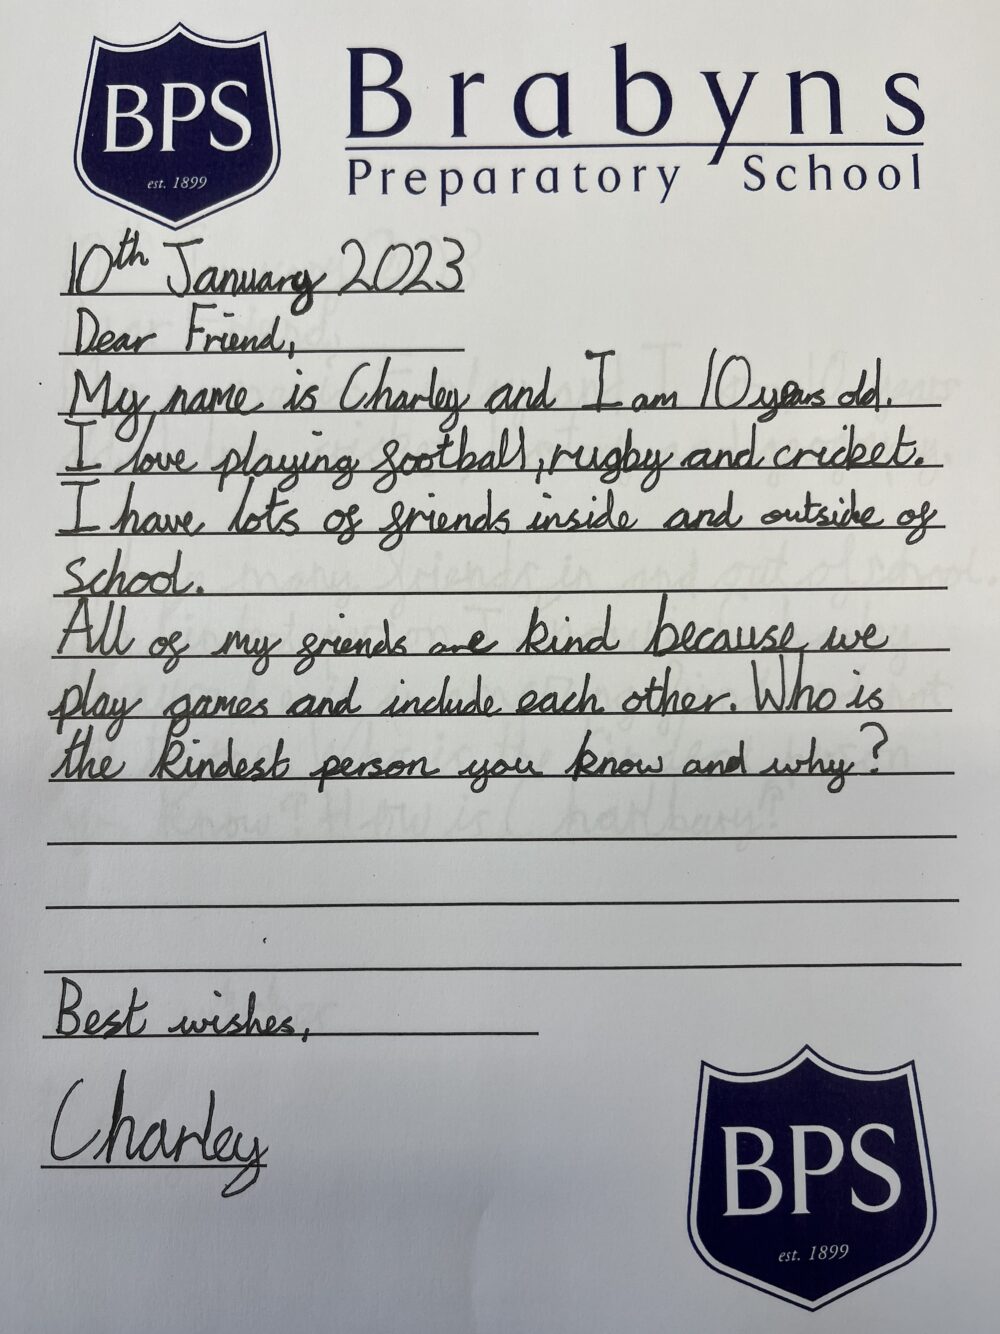 BPS
est. 1899
Brabyns
Preparatory School
10th January 2023
Dear Friend,
My name is Charley and I am 10 years old.
I love playing football, rugby and cricket.
I have lots of friends inside and outside of
school.
All of my friends are kind because we
play games and include each other. Who is
the kindest person you know and why?
Best wishes,
Charley
BPS
est. 1899